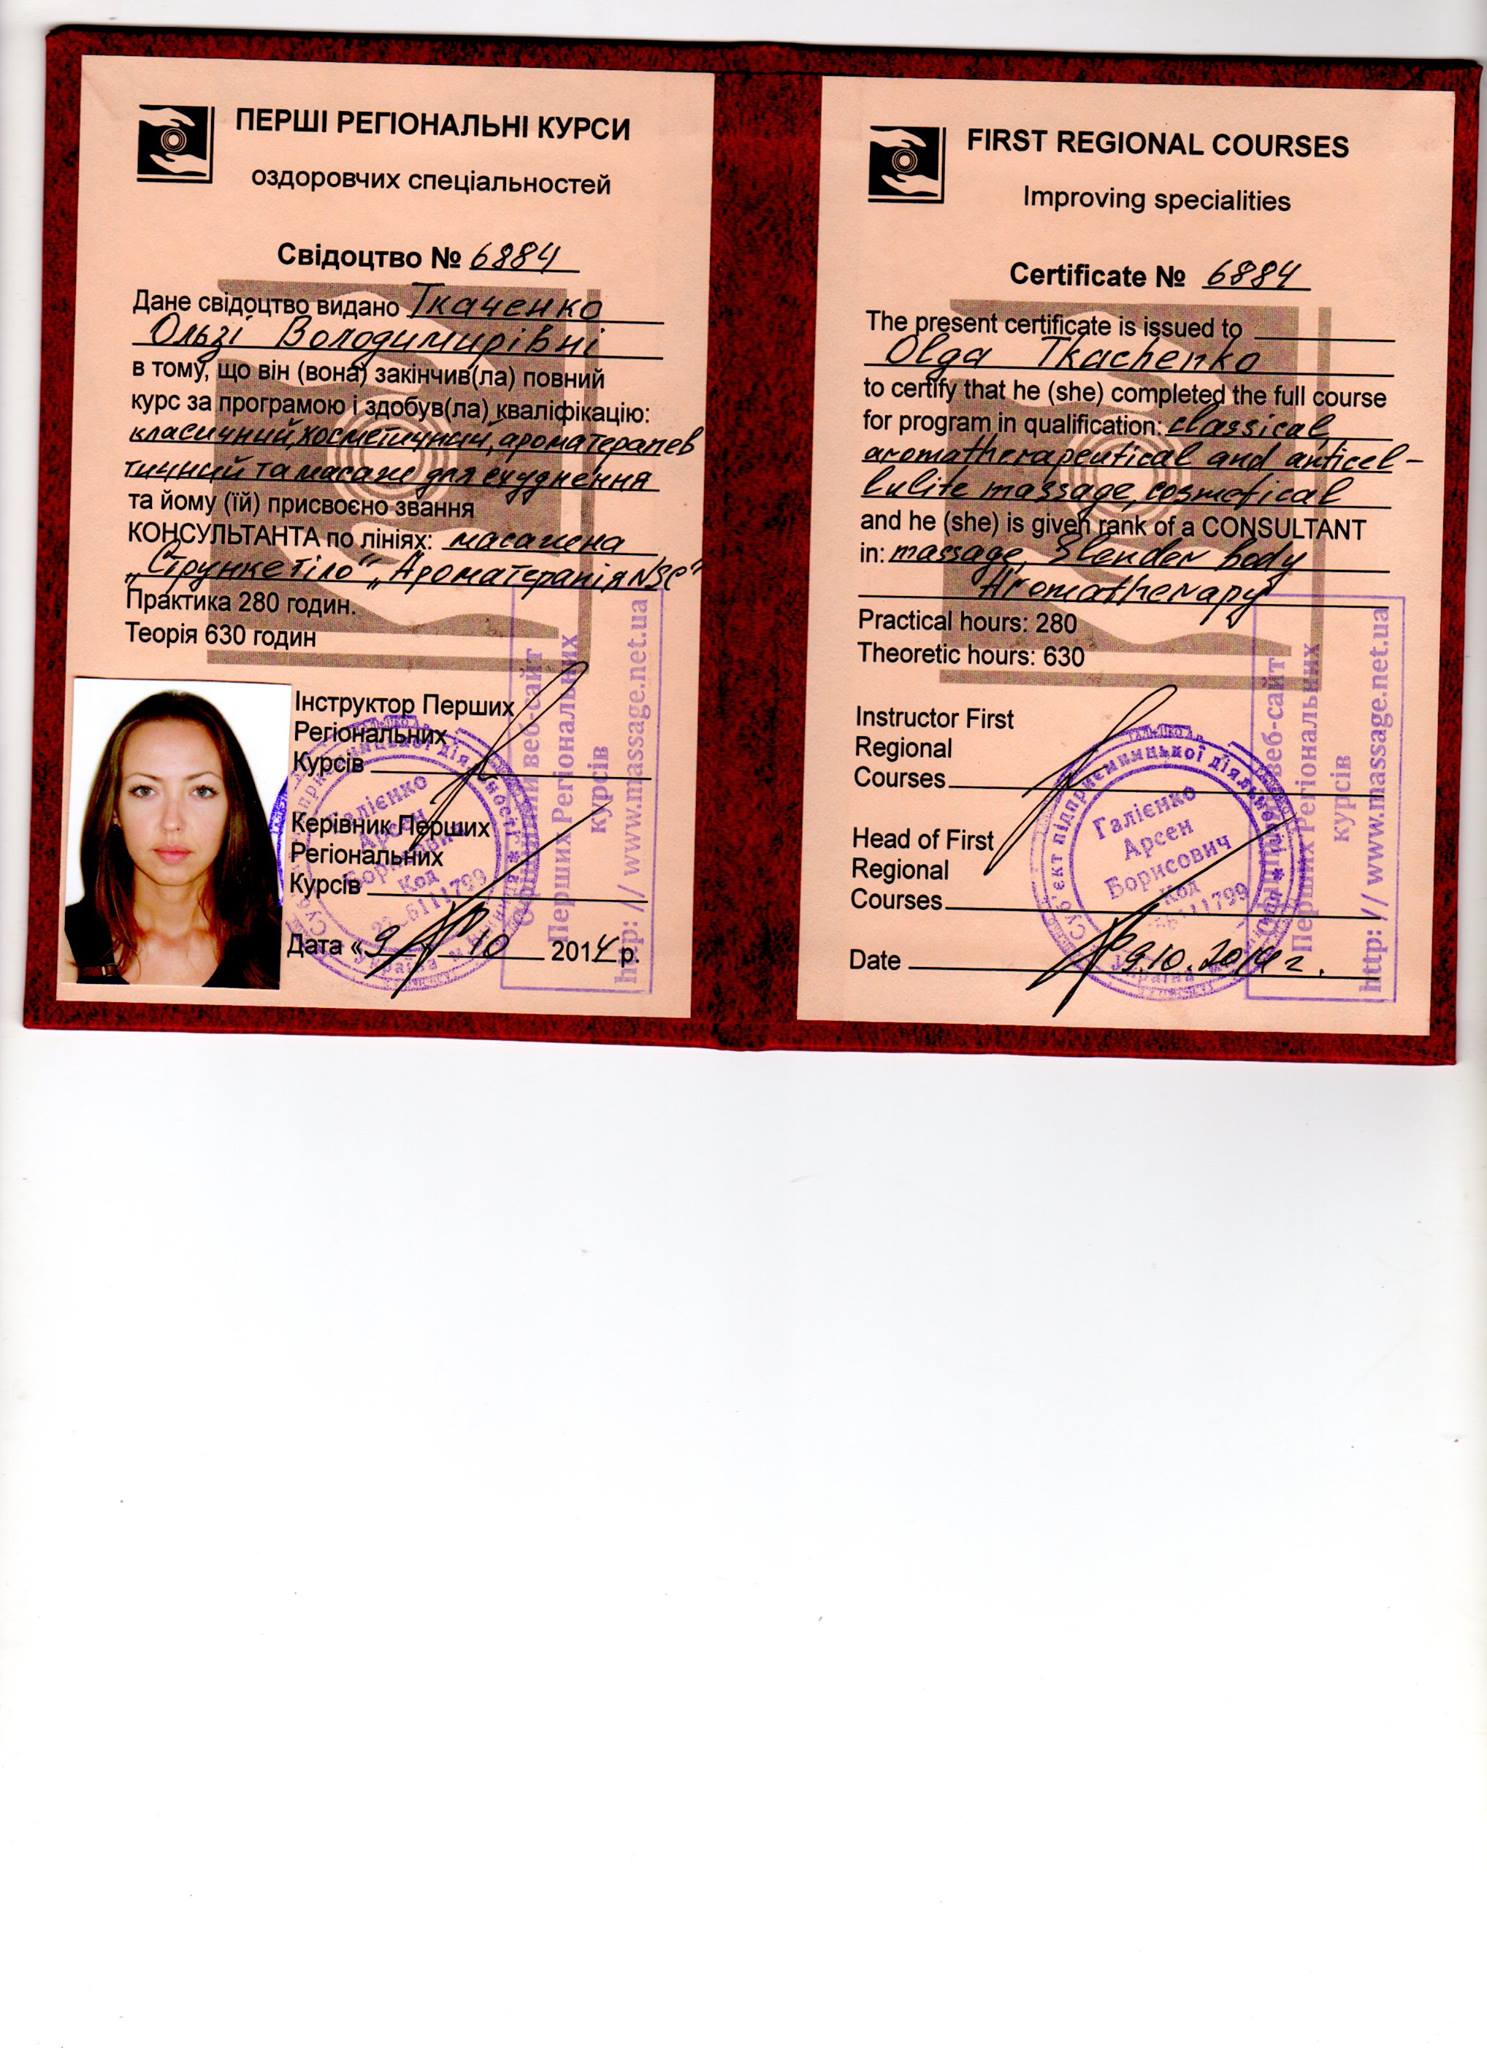 ПЕРШІ РЕГІОНАЛЬНІ КУРСИ
оздоровчих спеціальностей
Свідоцтво № 6884
Дане свідоцтво видано Ткаченко
Ользі Володимирівні
в тому, що він (вона) закінчив(ла) повний
курс за програмою і здобув(ла) кваліфікацію:
класичний, косметичний, ароматерапев
тичний та масаж для схуднення
та йому (їй) присвоєно звання
КОНСУЛЬТАНТА по лініях: масажна
„Струнке тіло" „Ароматерапія NSC"
Практика 280 годин.
Теорія 630 годин
Інструктор Перших
Регіональних
Курсів
Керівник Перших
Регіональних
Курсів
Дата « 9 » 10 2014 р.
веб-сайт
Перших Регіональних
курсів
http: // www.massage.net.ua
Галієнко
Арсен
Борисович
Код
Україна
FIRST REGIONAL COURSES
Improving specialities
Certificate № 6884
The present certificate is issued to
Olga Tkachenko
to certify that he (she) completed the full course
for program in qualification: classical,
aromatherapeutical and anticel-
lulite massage, cosmetical
and he (she) is given rank of a CONSULTANT
in: massage, Slender body
Aromatherapy
Practical hours: 280
Theoretic hours: 630
Instructor First
Regional
Courses
Head of First
Regional
Courses
Date 9.10.2014 г.
Суб'єкт підприємницької діяльності
Галієнко
Арсен
Борисович
Код
Україна
веб-сайт
Перших Регіональних
курсів
http: // www.massage.net.ua